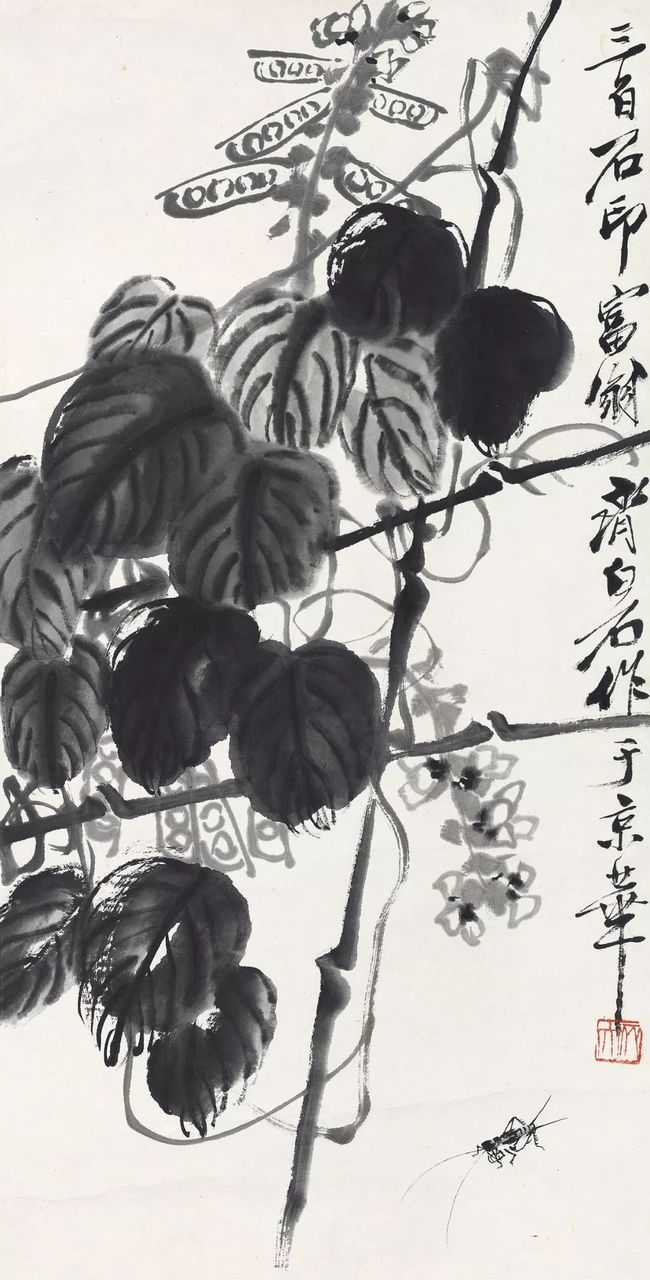 三百石印富翁齊白石作于京華